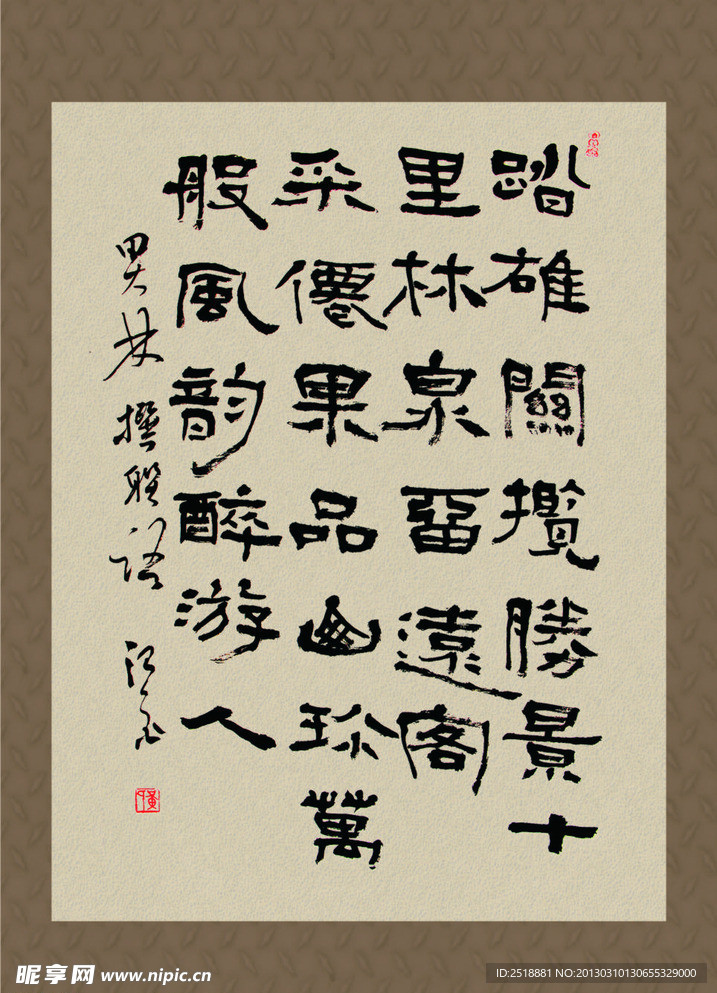 踏雄關攬勝景十
里林泉留遠客
采僊果品山珍萬
般風韵醉游人
林撰聯語
昵享网 www.nipic.cn
ID:2518881 NO:20130310130655329000